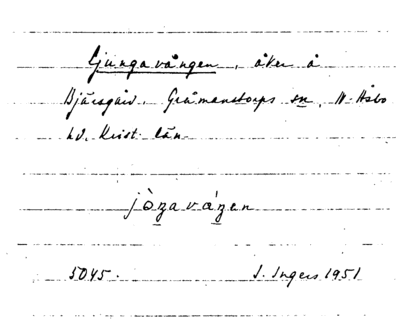 Ljungavången, åker å
Bjärsgård. Gråmanstorps sn, N. Åsbo
hd. Krist. län.
jòṉgavánen
5045. I. Ingers 1951